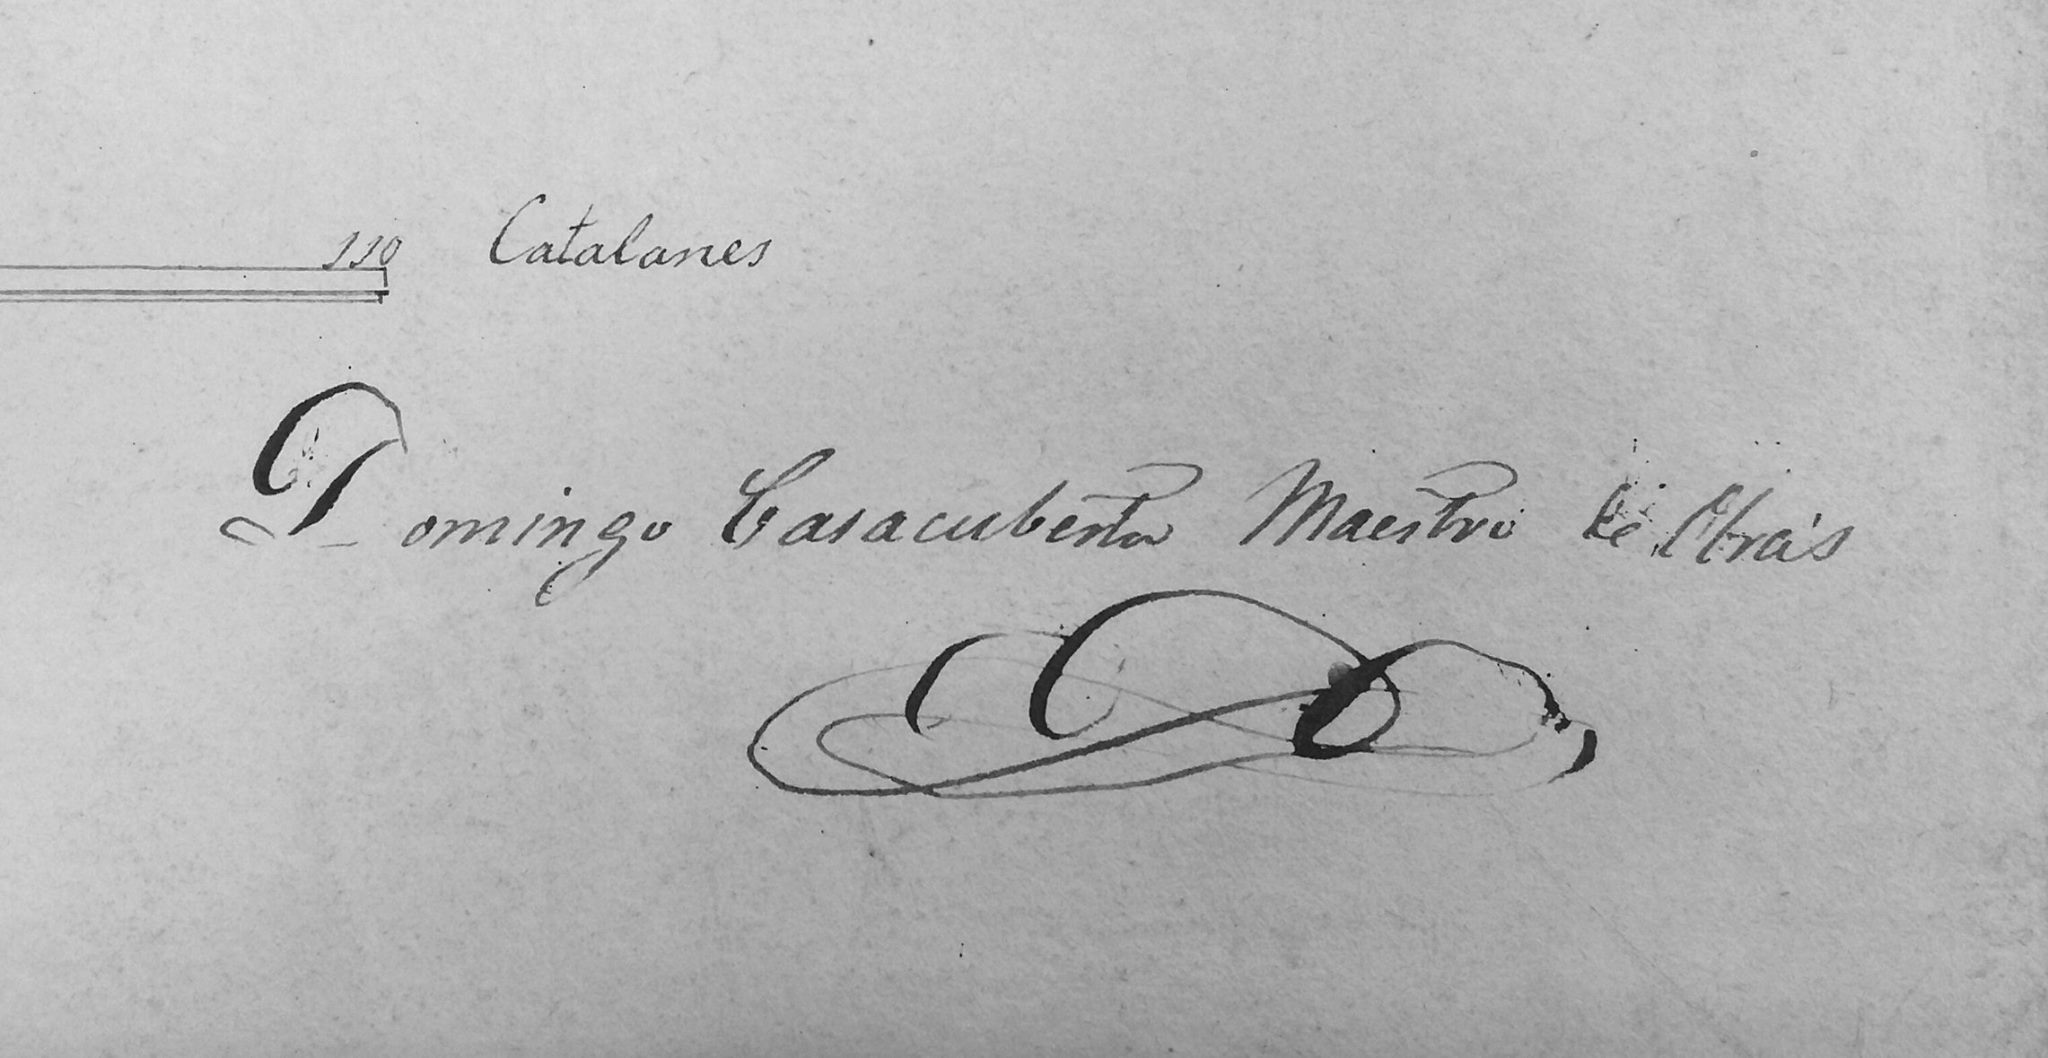 110 Catalanes
Domingo Casacuberta Maestro de Obras